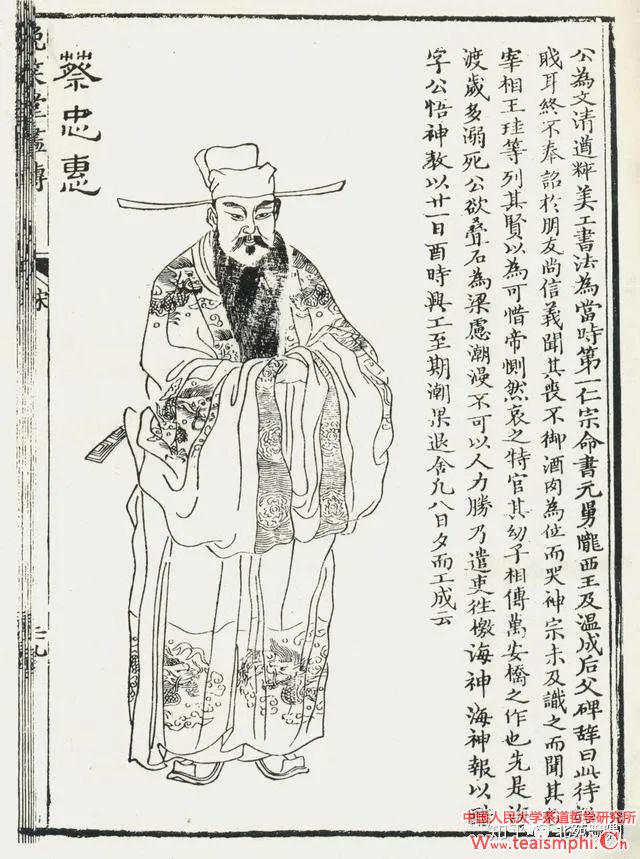 公為文清遒粹美工書法為當時第一仁宗命書元舅隴西王及温成后父碑辭曰此待
戝耳終不奉詔於朋友尚信義聞其喪不御酒肉為位而哭神宗未及識之而聞其
宰相王珪等列其賢以為可惜帝惻然哀之特官其幼子相傳萬安橋之作也先是
渡歲多溺死公欲叠石為梁慮潮漫不可以人力勝乃遣吏往檄海神海神報以
字公悟神教以廿一日酉時興工至期潮果退舍凡八日夕而工成云
蔡忠惠
晚笑堂畫傳
中国人民大学茶道哲学研究所
知乎
www.teaismphi.Cn